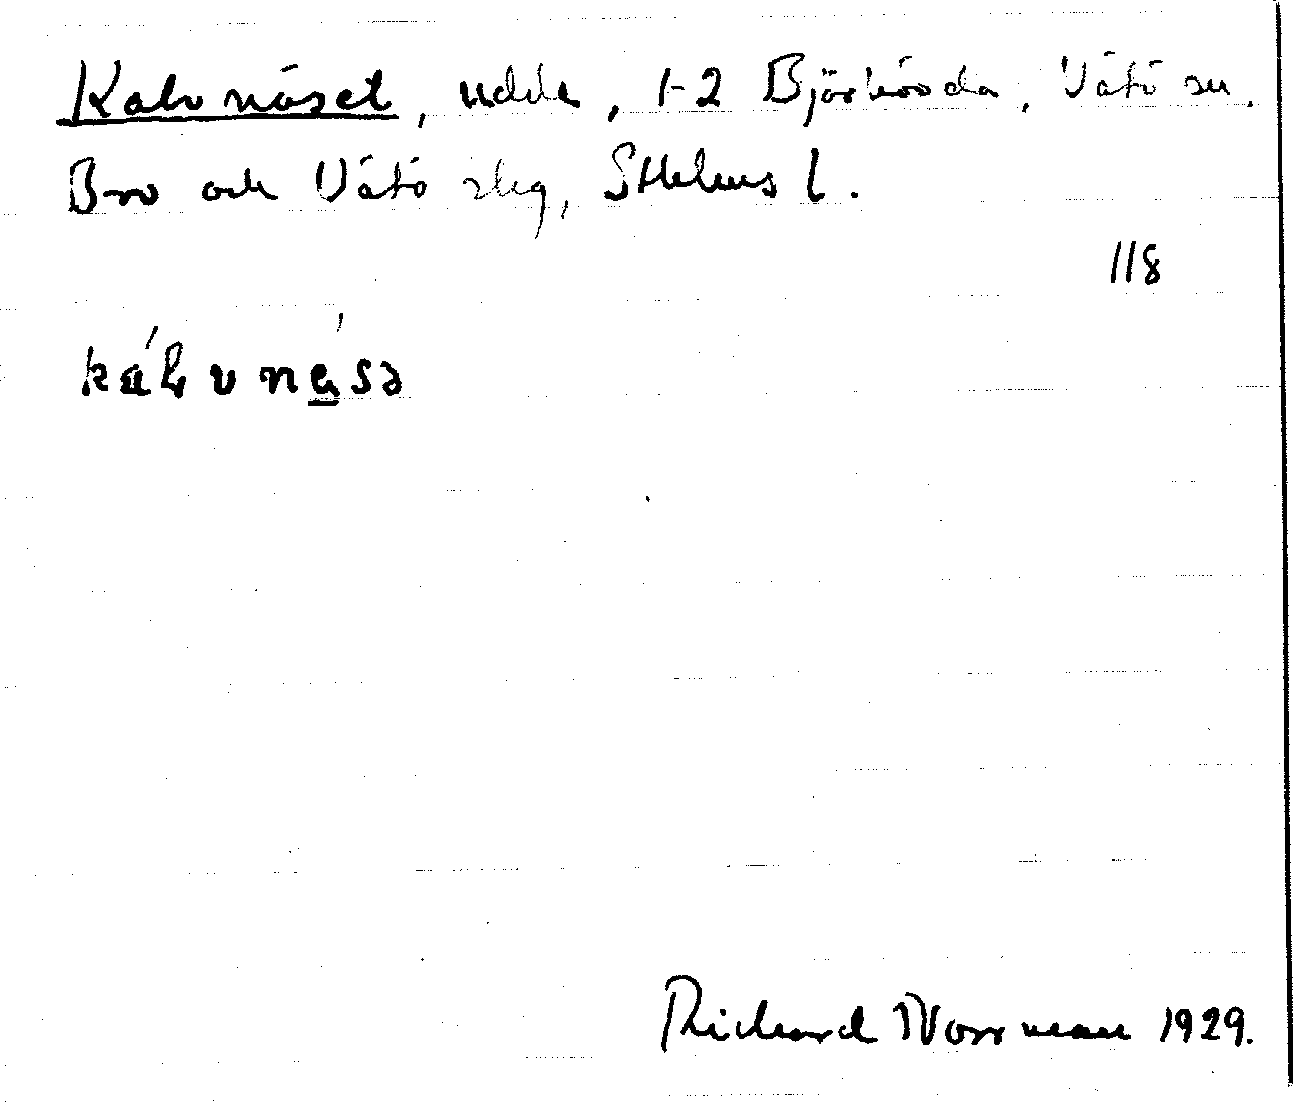 Kalvnäset, udde, 1-2 Björknäs, Vätö sn.
Bro och Vätö slg, Sthlms l.
118
kálvnä́sə
Richard Norrman 1929.